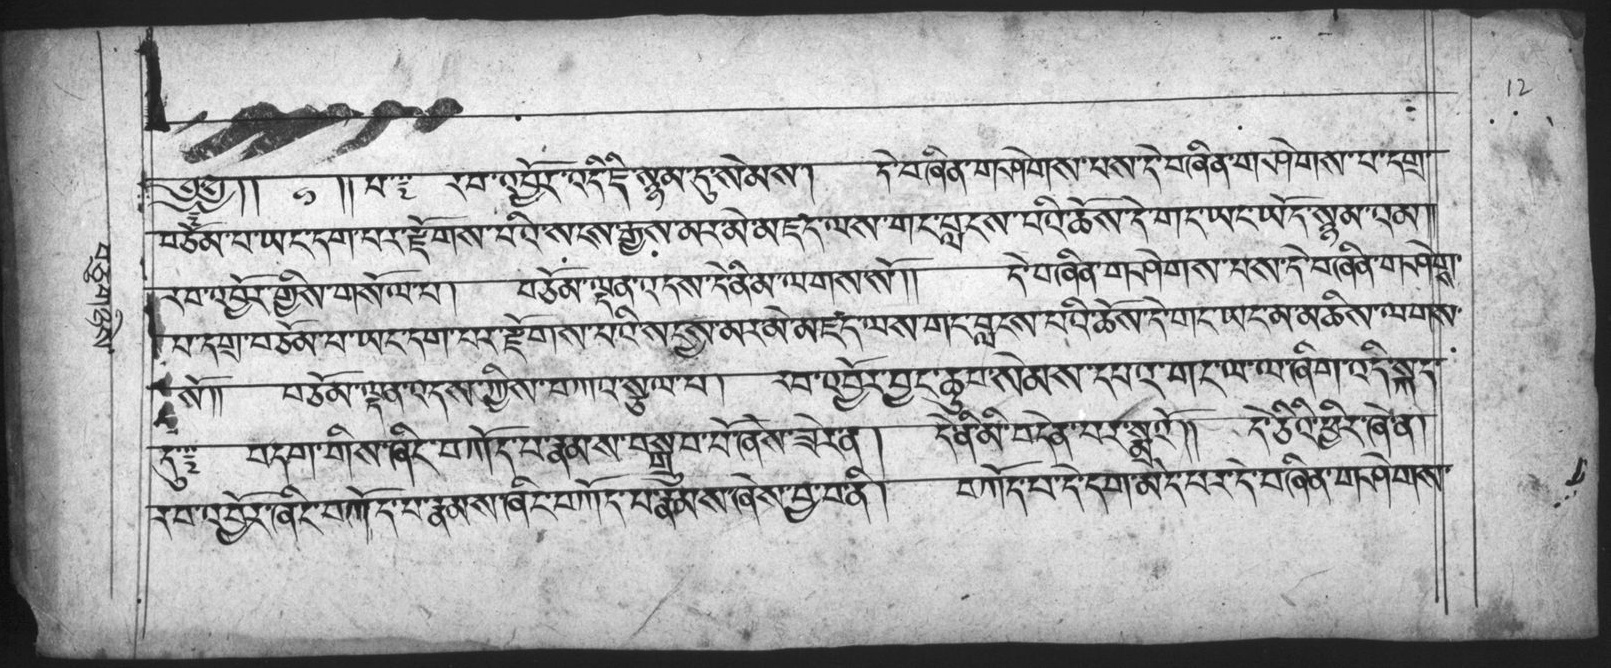 ༄༅།། ༠ །།པ༔ རབ་འབྱོར་འདི་ཇི་སྙམ་དུ་སེམས། དེ་བཞིན་གཤེགས་པས་དེ་བཞིན་གཤེགས་པ་དགྲ་
བཅོམ་པ་ཡང་དག་པར་རྫོགས་པའི་སངས་རྒྱས་མར་མེ་མཛད་ལས་གང་བླངས་པའི་ཆོས་དེ་གང་ཡང་ཡོད་སྙམ་འམ།།
རབ་འབྱོར་གྱིས་གསོལ་པ། བཅོམ་ལྡན་འདས་དེ་ནི་མ་ལགས་སོ།། དེ་བཞིན་གཤེགས་པས་དེ་བཞིན་གཤེགས་
པ་དགྲ་བཅོམ་པ་ཡང་དག་པར་རྫོགས་པའི་སངྱས་མར་མེ་མཛད་ལས་གང་བླངས་པའི་ཆོས་དེ་གང་ཡང་མ་མཆིས་ལགས་
སོ།། བཅོམ་ལྡན་འདས་ཀྱིས་བཀའ་སྩལ་པ། རབ་འབྱོར་བྱང་ཆུབ་སེམས་དཔའ་གང་ལ་ལ་ཞིག་འདི་སྐད་
དུ༔ བདག་གིས་ཞིང་བཀོད་པ་རྣམས་བསྒྲུབ་པོ་ཞེས་ཟེར་ན། དེ་ནི་མི་བདེན་པར་སྨྲའོ།། དེ་ཅིའི་ཕྱིར་ཞེ་ན།
རབ་འབྱོར་ཞིང་བཀོད་པ་རྣམས་ཞིང་བཀོད་པ་རྣམས་ཞེས་བྱ་བ་ནི། བཀོད་པ་དེ་དག་མེད་པར་དེ་བཞིན་གཤེགས་
12